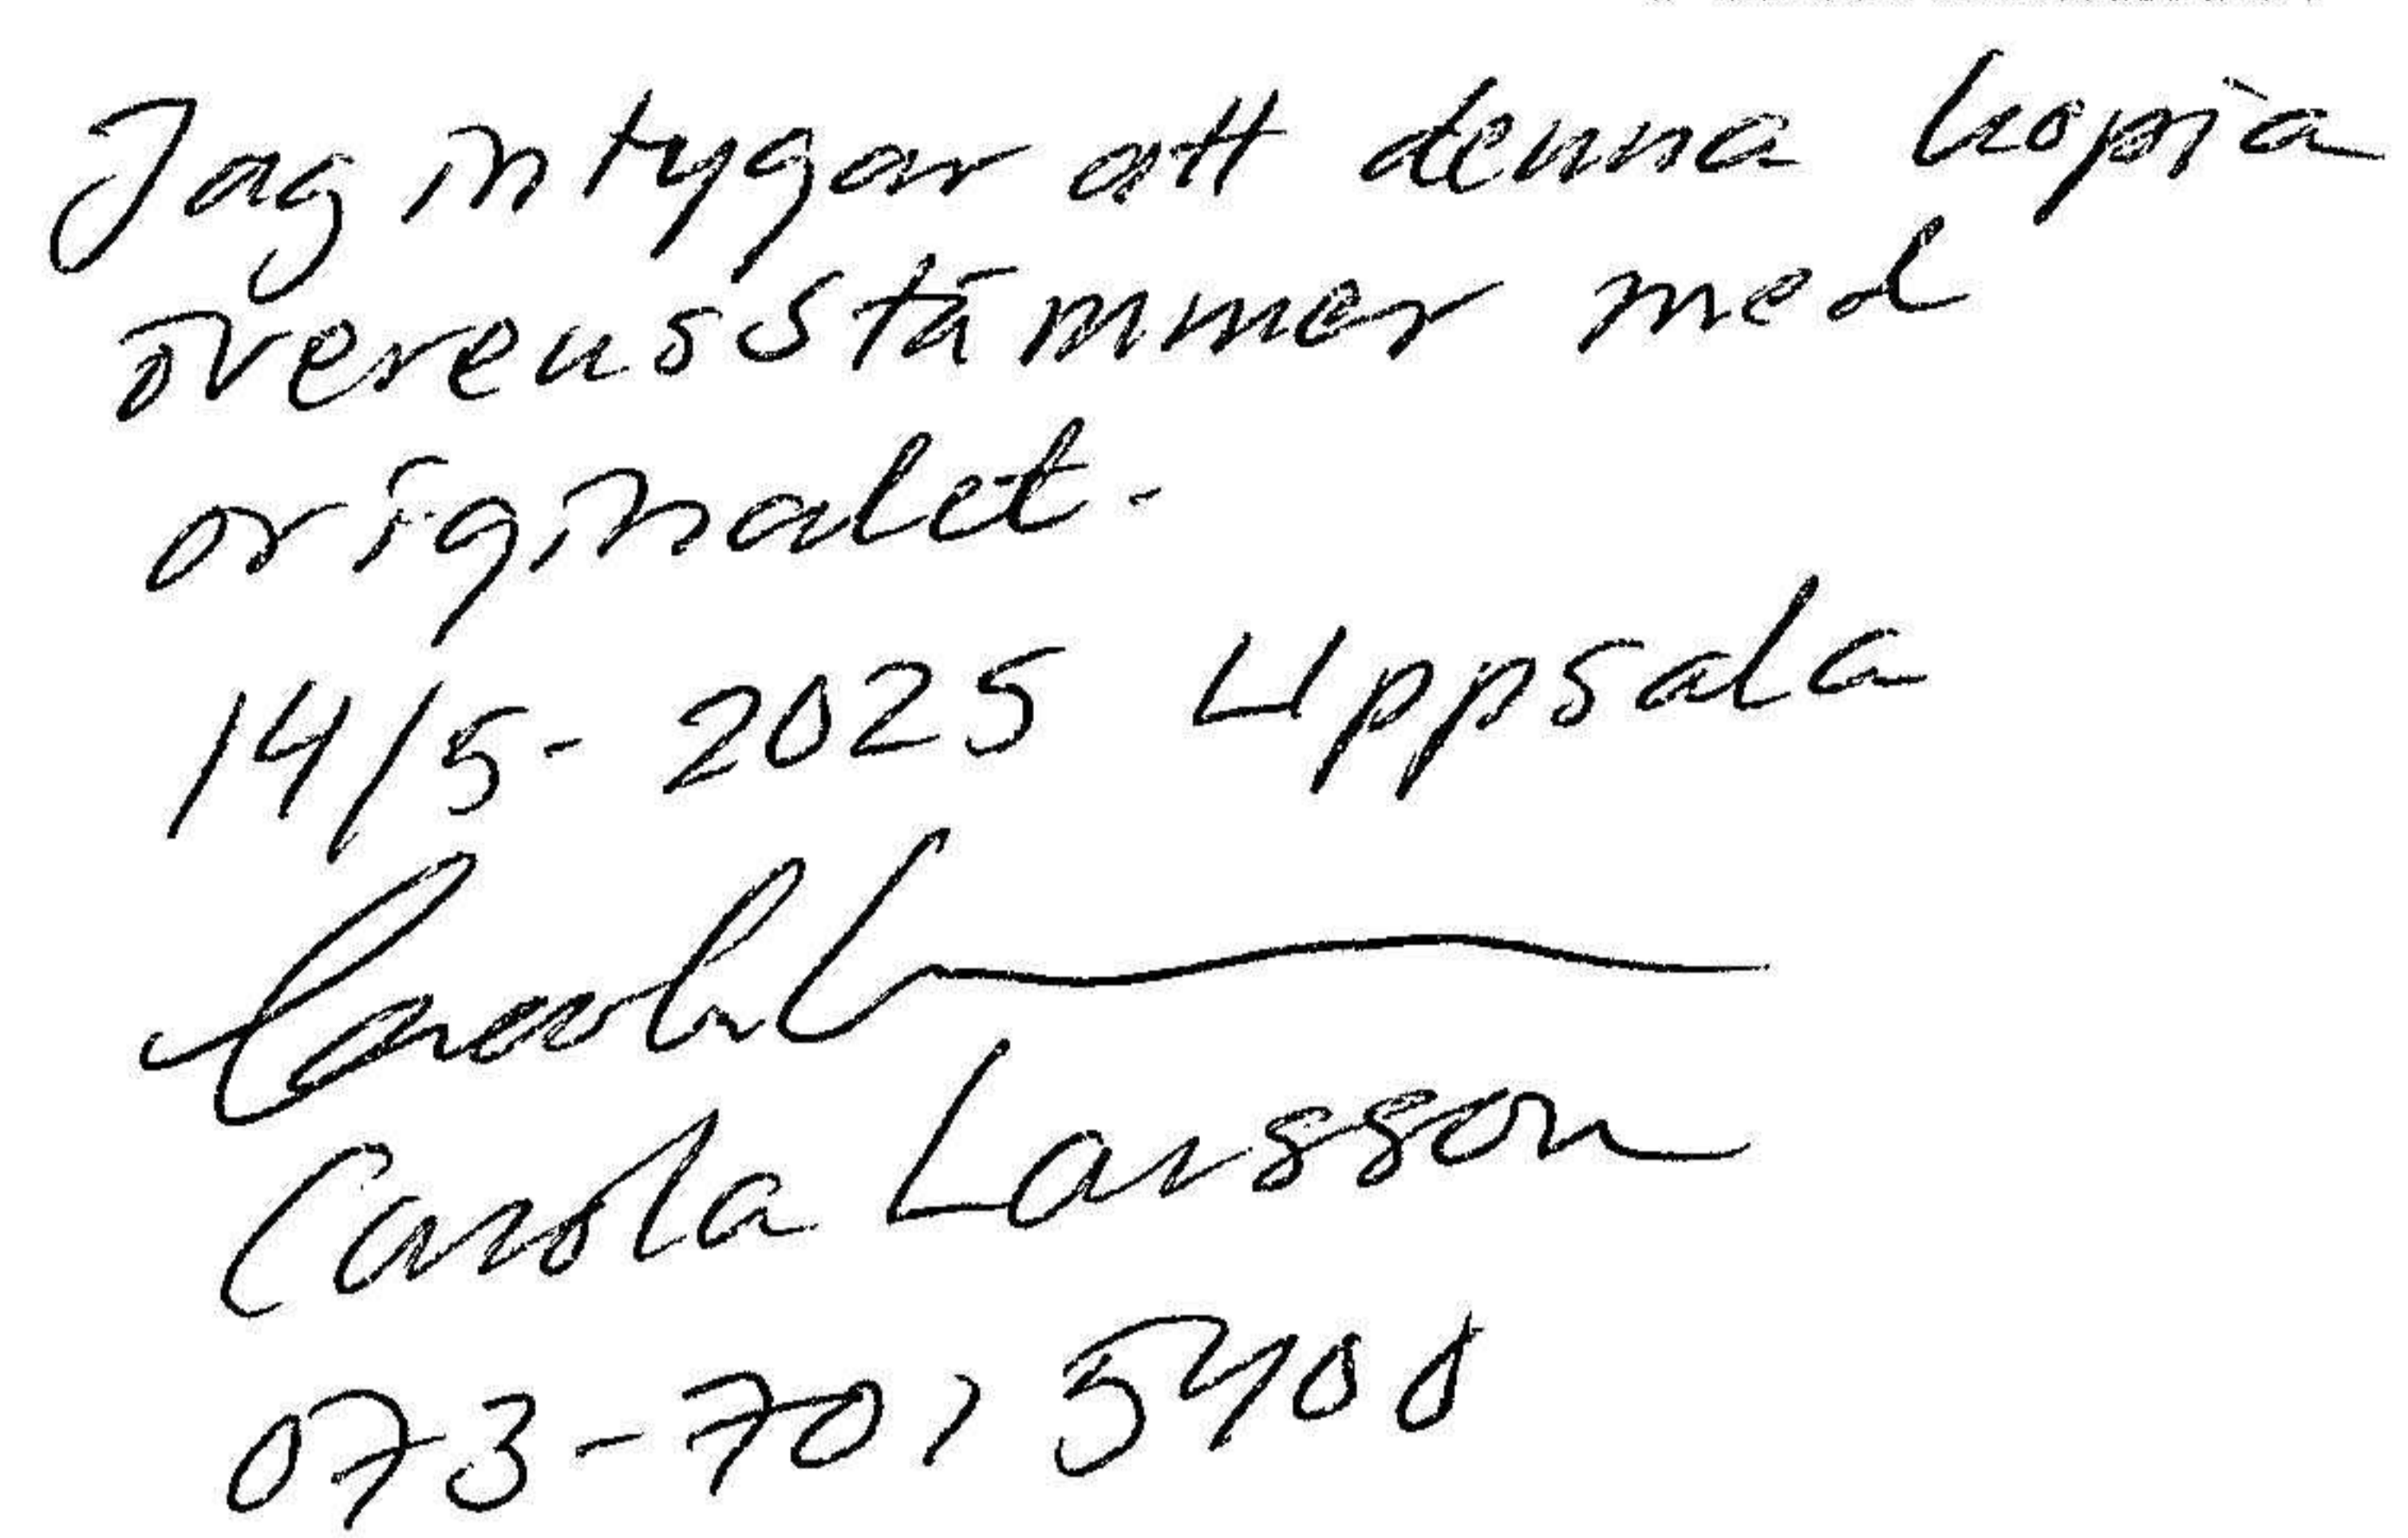 Jag intygar att denna kopia
överensstämmer med
originalet.
14/5-2025 Uppsala
Carola Larsson
073-701 5400